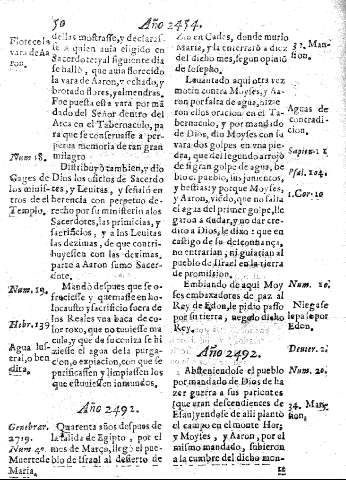 50
Año 2454.
Florece la
vara de Aa
ron.
de llas mostrasse, y declarasse
a quien auia eligido en
Sacerdote: y al siguiente dia
se halló, que auia florecido
la vara de Aaron, y echado, y
brotado flores, y almendras.
Fue puesta esta vara por mãdado
del Señor dentro del
Arca en el Tabernaculo, para
que se conseruasse a perpetua
memoria de tan gran
milagro
Num 18.
Gages de
los minist
tros de el
Templo.
Distribuyò tambien, y dio
Dios los oficios de Sacerdotes,
y Leuitas, y señaló en
herencia con perpetuo derecho
por su ministerio a los
Sacerdotes, las primicias, y
sacrificios, y a los Leuitas
las dezimas, de que contribuyessen
con las dezimas,
parte a Aaron sumo Sacerdote.
Num. 19.
Hebr. 139
Agua lustral,
o bendita.
Mandò despues que se ofreciesse
y quemasse en holocausto
y sacrificio fuera de
los Reales vna baca de color
roxo, que no tuuiesse macula,
y que de su ceniza se hiziesse
el agua de la purgacion,
o expiacion, con que se
purificassen y limpiassen los
que estuuiessen inmundos.
Año 2492.
Genebrar.
2719.
Num 40.
Muerte de
Maria.
Quarenta años despues de
la salida de Egipto, por el
mes de Março, llegò el pueblo
de Israel al desierto de
Zin en Cades, donde murio
Maria, y la enterraró a diez
del dicho mes, segun opinió
de Iosepho.
33. Mansion.
Leuantado aqui otra vez
motin contra Moyses, y Aaron
por falta de agua, hizieron
ellos oracion en el Tabernaculo,
y por mandado
de Dios, dio Moyses con su
vara dos golpes en vna piedra,
que del segundo arrojó
de si gran golpe de agua, bebio
el pueblo, sus jumentos,
y bestias: y porque Moyses,
y Aaron, viẽdo, que no salia
el agua del primer golpe, llegaron
a dudar, y no dar credito
a Dios, le dixo: que en
castigo de su desconfiança,
no entrarian, ni guiarian al
pueblo de Israel en la tierra
de promission.
Aguas de
contradicion.
Sapien. 11
Psal. 104.
1. Cor. 10
Embiando de aqui Moyses
embaxadores de paz al
Rey de Edon, le pidio passo
por su tierra, negolo dicho
Rey.
Num. 20.
Niegase
le passo por
Edon.
Año 2492.
Deuter. 2.
Absteniendose el pueblo
por mandado de Dios de hazer
guerra a sus parientes
(que eran descendientes de
Esau) yendose de alli plantò
el campo en el monte Hor,
y Moyses, y Aaron, por el
mismo mandado, subieron
a la cumbre del dicho mon-
Num. 20.
34. Mansion
te